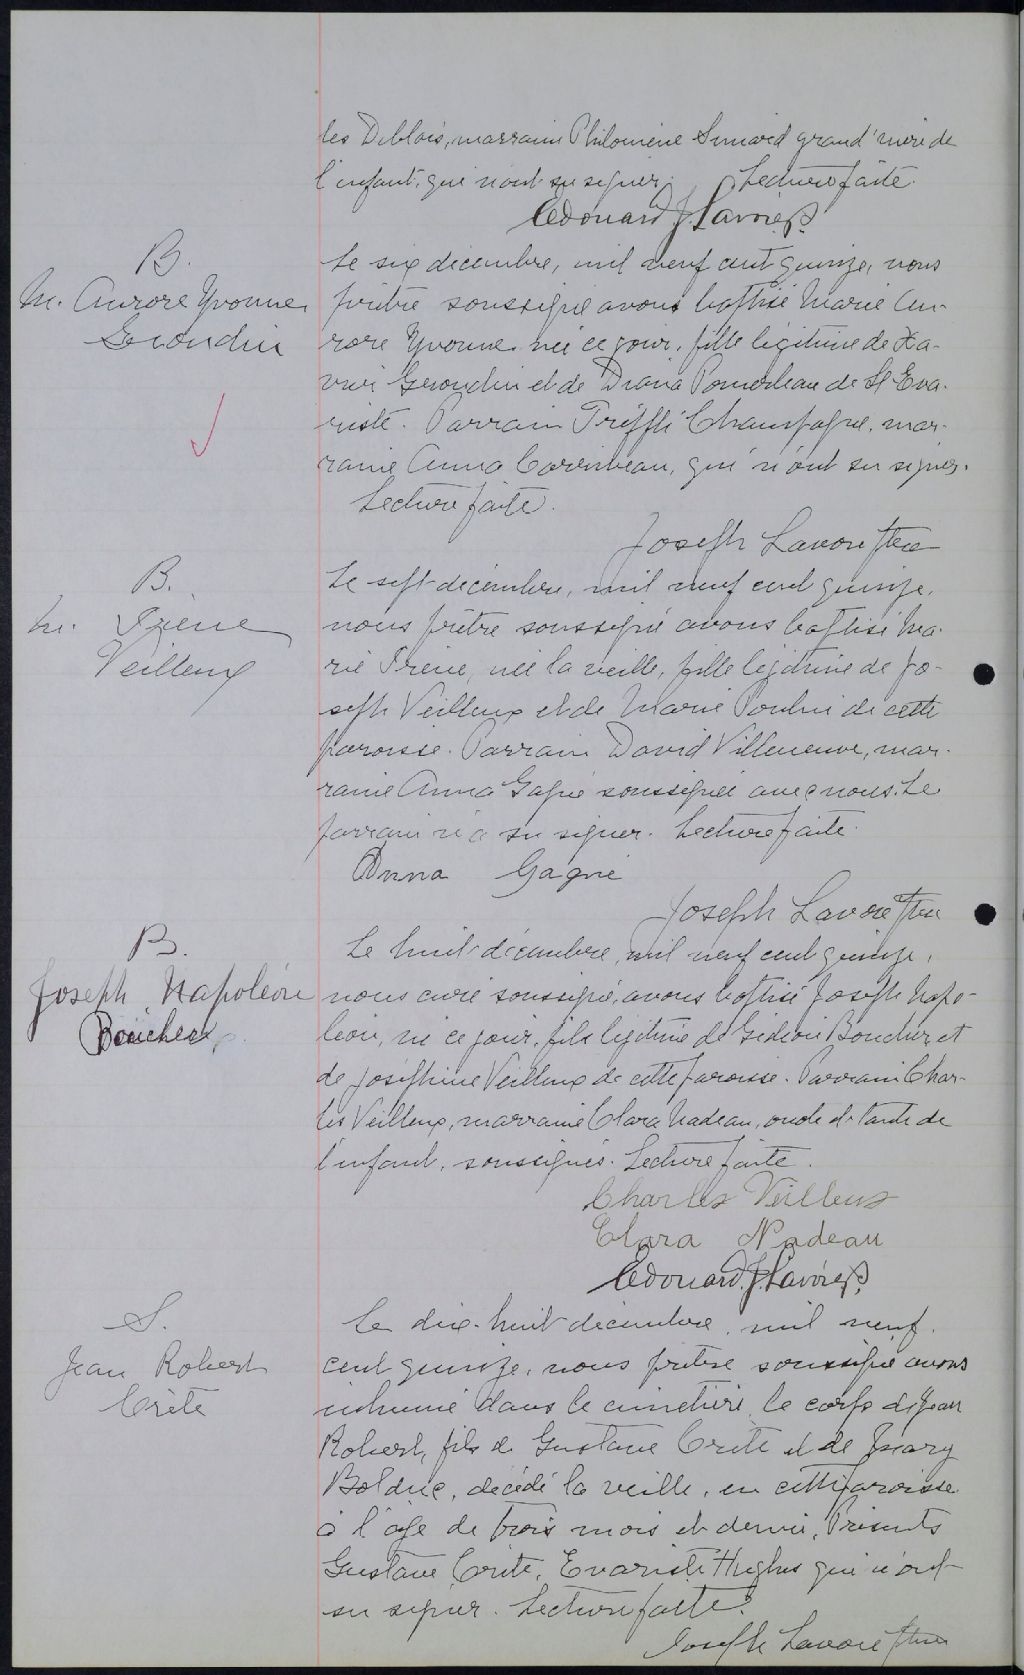 les Deblois, marraine Philomène Simard grand'mère de
l'enfant, qui n'ont su signer. Lecture faite.
Edouard J. Lavoie Ptr.
B.
M. Aurore Yvonne
Grondin
Le six décembre, mil neuf cent quinze, nous
prêtre soussigné avons baptisé Marie Au-
rore Yvonne née ce jour, fille légitime de Xa-
vier Grondin et de Diana Pomerleau de St Eva-
riste. Parrain Trefflé Champagne, mar-
raine Anna Corriveau, qui n'ont su signer.
Lecture faite.
Joseph Lavoie Ptre
B.
M. Irène
Veilleux
Le sept décembre, mil neuf cent quinze,
nous prêtre soussigné avons baptisé Ma-
rie Irène, née la veille, fille légitime de Jo-
seph Veilleux et de Marie Poulin de cette
paroisse. Parrain David Villeneuve, mar-
raine Anna Gagné soussignée avec nous. Le
parrain n'a su signer. Lecture faite.
Anna Gagné
Joseph Lavoie Ptre
B.
Joseph Napoléon
Boucher
Le huit décembre, mil neuf cent quinze,
nous curé soussigné, avons baptisé Joseph Napo-
léon, né ce jour, fils légitime de Gédéon Boucher et
de Joséphine Veilleux de cette paroisse. Parrain Char-
les Veilleux, marraine Clara Nadeau, oncle et tante de
l'enfant, soussignés. Lecture faite.
Charles Veilleux
Clara Nadeau
Edouard J. Lavoie Ptr.
S.
Jean Robert
Crête
Le dix-huit décembre, mil neuf
cent quinze, nous prêtre soussigné avons
inhumé dans le cimetière le corps de Jean
Robert, fils de Gustave Crête et de Mary
Bolduc, décédé la veille, en cette paroisse
à l'âge de trois mois et demi. Présents
Gustave Crête, Evariste Hughes qui n'ont
su signer. Lecture faite.
Joseph Lavoie Ptre